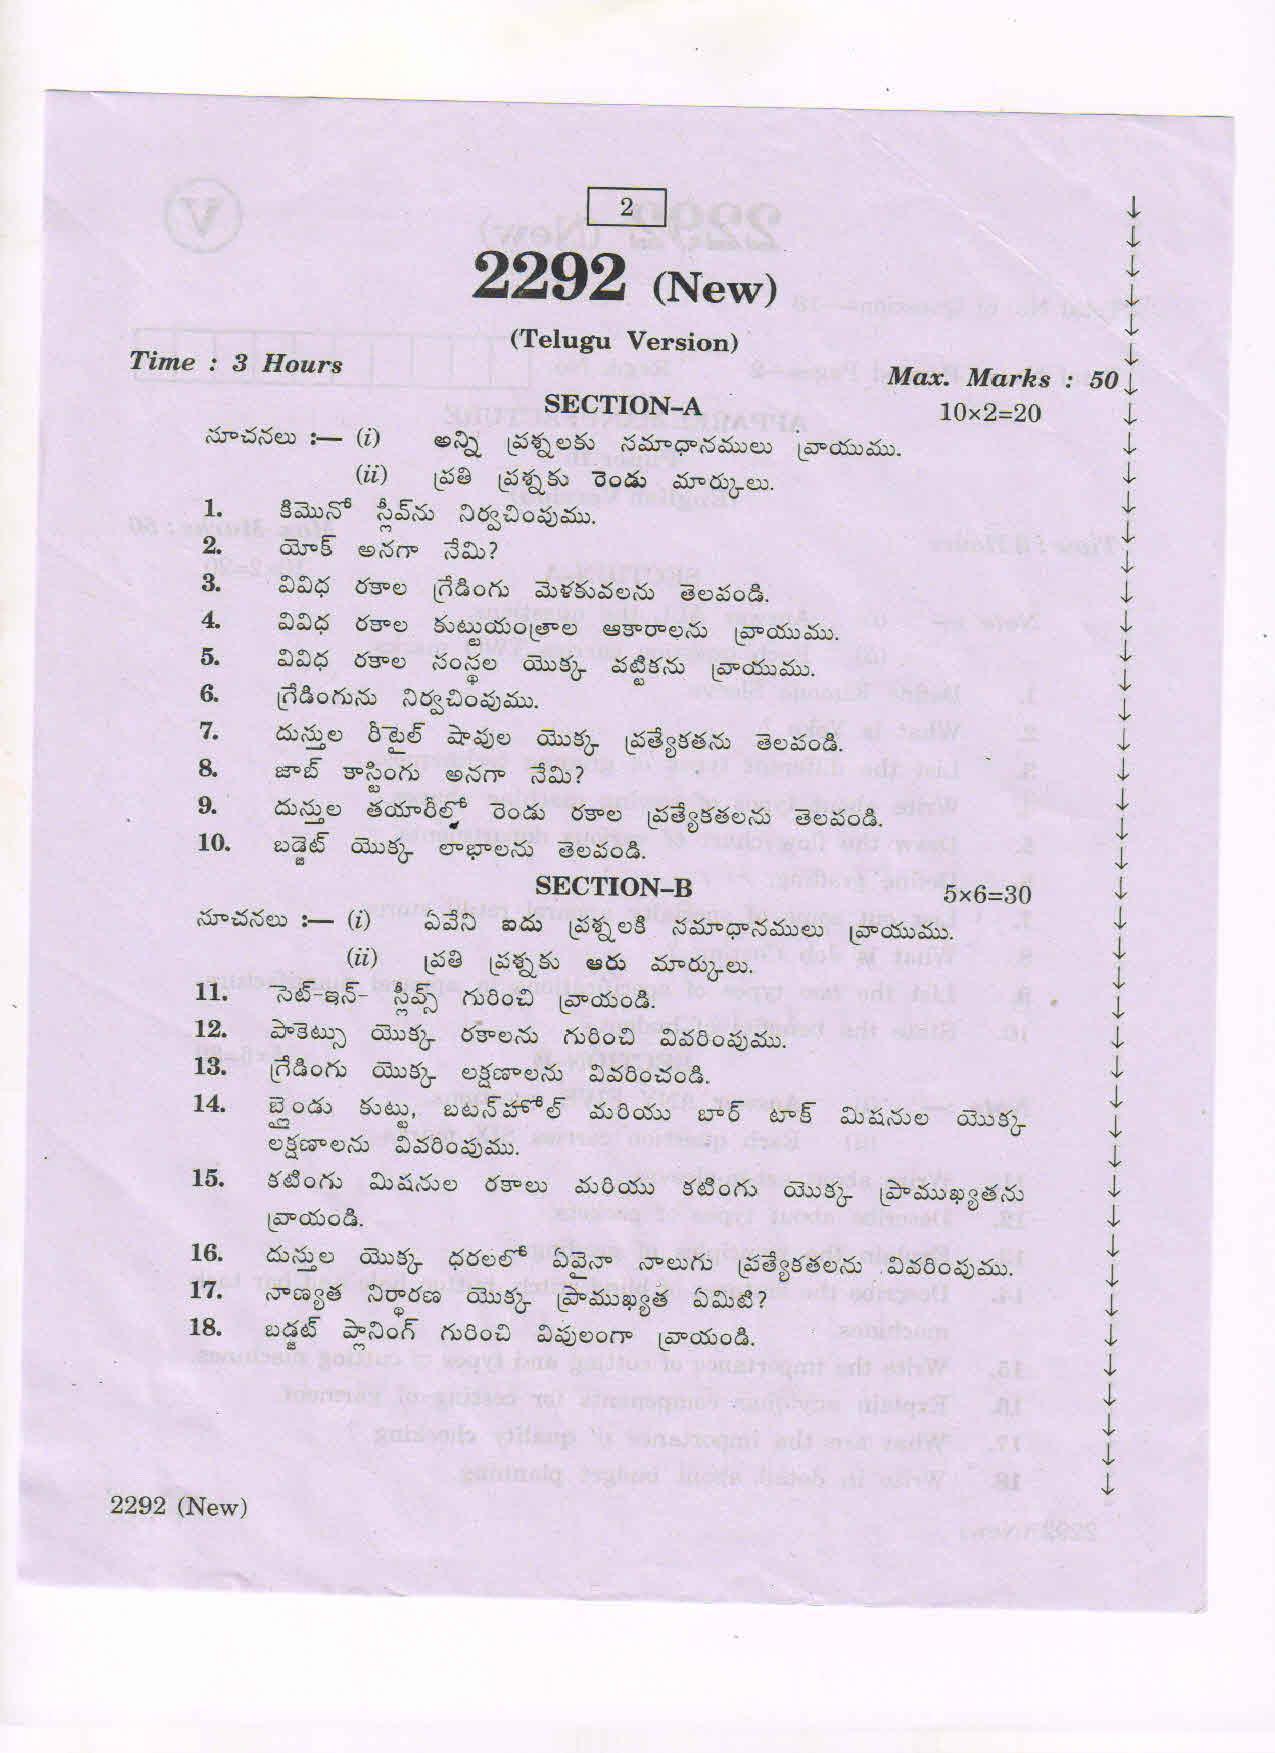 2
2292 (New)
(Telugu Version)
Time : 3 Hours
Max. Marks : 50
SECTION–A
10×2=20
సూచనలు :— (i) అన్ని ప్రశ్నలకు సమాధానములు వ్రాయుము.
(ii) ప్రతి ప్రశ్నకు రెండు మార్కులు.
1. కిమొనో స్లీవ్‌ను నిర్వచింపుము.
2. యోక్ అనగా నేమి?
3. వివిధ రకాల గ్రేడింగు మెళకువలను తెలపండి.
4. వివిధ రకాల కుట్టుయంత్రాల ఆకారాలను వ్రాయుము.
5. వివిధ రకాల సంస్థల యొక్క పట్టికను వ్రాయుము.
6. గ్రేడింగును నిర్వచింపుము.
7. దుస్తుల రీటైల్ షాపుల యొక్క ప్రత్యేకతను తెలపండి.
8. జాబ్ కాస్టింగు అనగా నేమి?
9. దుస్తుల తయారీలో రెండు రకాల ప్రత్యేకతలను తెలపండి.
10. బడ్జెట్ యొక్క లాభాలను తెలపండి.
SECTION–B
5×6=30
సూచనలు :— (i) ఏవేని ఐదు ప్రశ్నలకి సమాధానములు వ్రాయుము.
(ii) ప్రతి ప్రశ్నకు ఆరు మార్కులు.
11. సెట్-ఇన్- స్లీవ్స్ గురించి వ్రాయండి.
12. పాకెట్సు యొక్క రకాలను గురించి వివరింపుము.
13. గ్రేడింగు యొక్క లక్షణాలను వివరించండి.
14. బ్లైండు కుట్టు, బటన్‌హోల్ మరియు బార్ టాక్ మిషనుల యొక్క
లక్షణాలను వివరింపుము.
15. కటింగు మిషనుల రకాలు మరియు కటింగు యొక్క ప్రాముఖ్యతను
వ్రాయండి.
16. దుస్తుల యొక్క ధరలలో ఏవైనా నాలుగు ప్రత్యేకతలను వివరింపుము.
17. నాణ్యత నిర్ధారణ యొక్క ప్రాముఖ్యత ఏమిటి?
18. బడ్జట్ ప్లానింగ్ గురించి విపులంగా వ్రాయండి.
2292 (New)